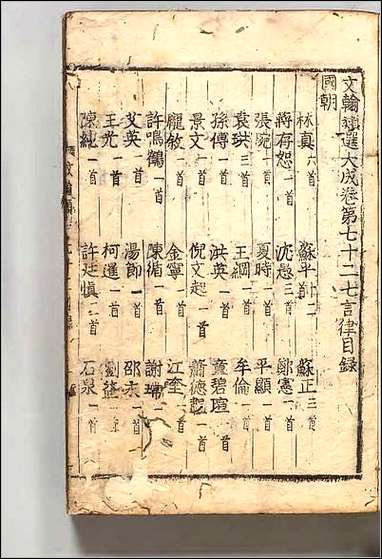 文翰類選大成卷第七十二七言律目錄
國朝
林真六首 蘇平十二首 蘇正三首
蔣存恕一首 沈愚三首 鄭憲一首
張琬一首 夏時一首 平顯一首
袁珙三首 王綱一首 牟倫一首
孫傅一首 洪英一首 童碧瑄一首
景文一首 倪文起一首 蕭德藴一首
龐敘一首 金寧一首 江奎一首
許鳴鶴一首 陳循一首 謝瑞一首
艾英一首 湯節一首 邵 一首
王光一首 柯暹一首 劉 一首
陳純一首 許廷慎一首 石泉一首